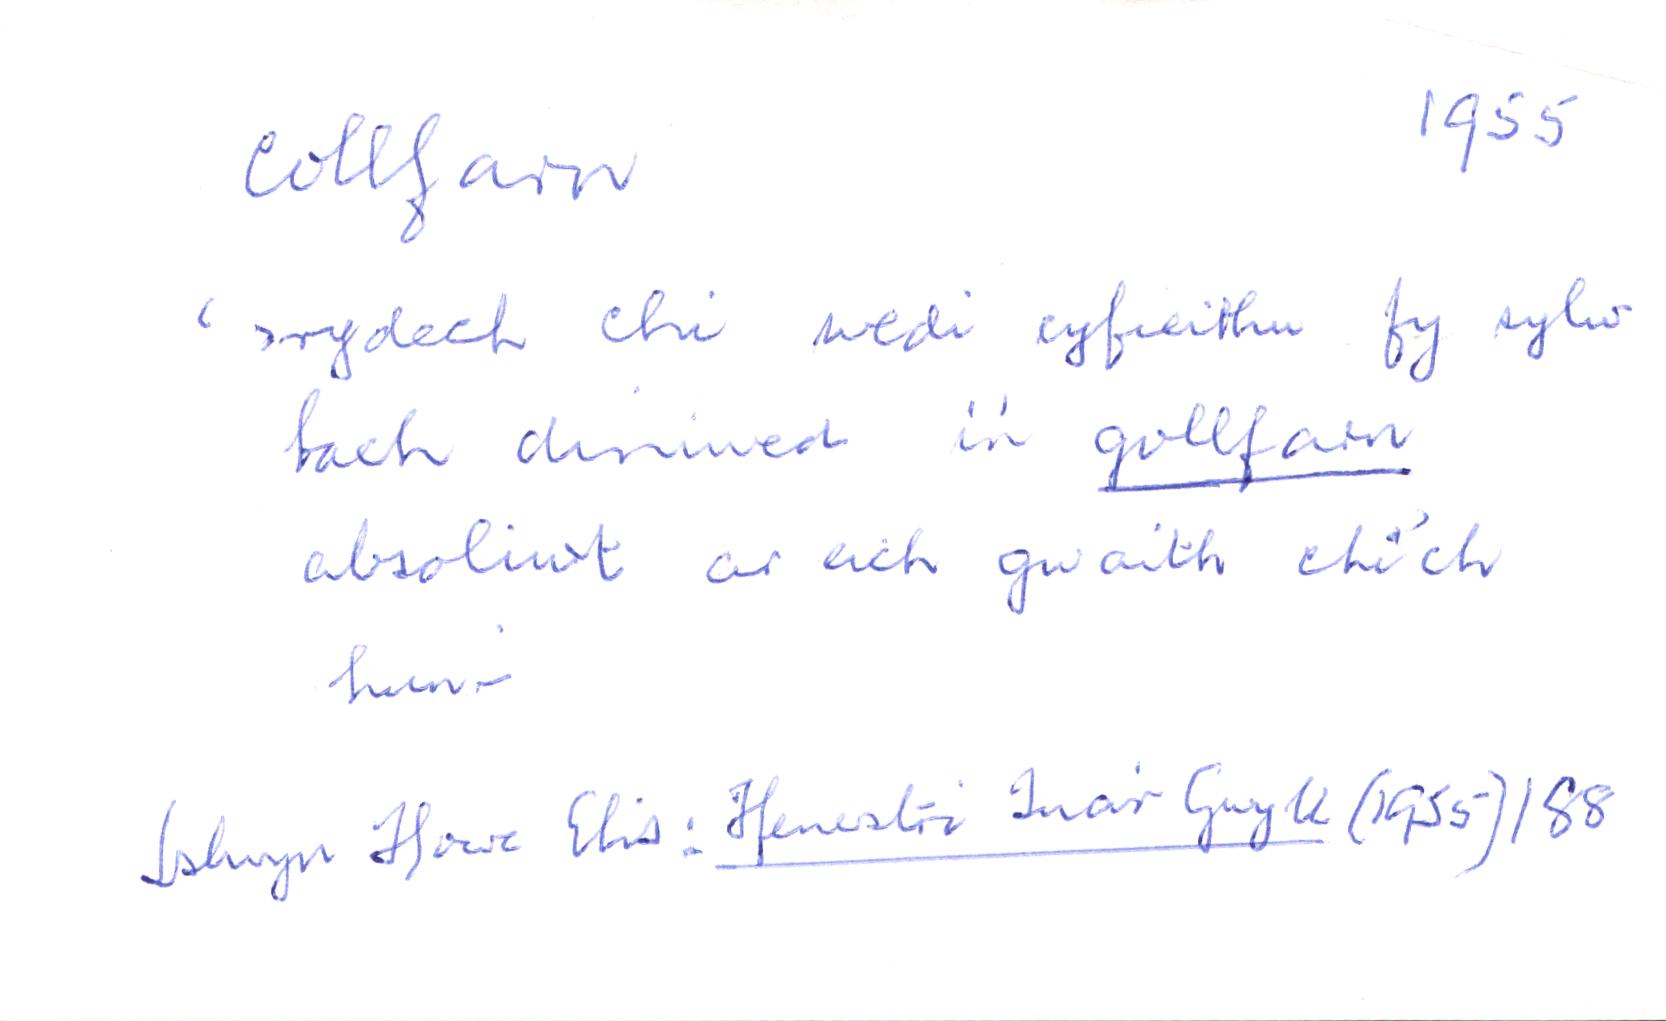 collfarn 1955
‘rydech chi wedi cyfieithu fy sylw
bach diniwed i'n gollfarn
absoliwt ar eich gwaith chi'ch
hun.-
Islwyn Ffowc Elis: Ffenestri Tua'r Gwyll (1955) 188